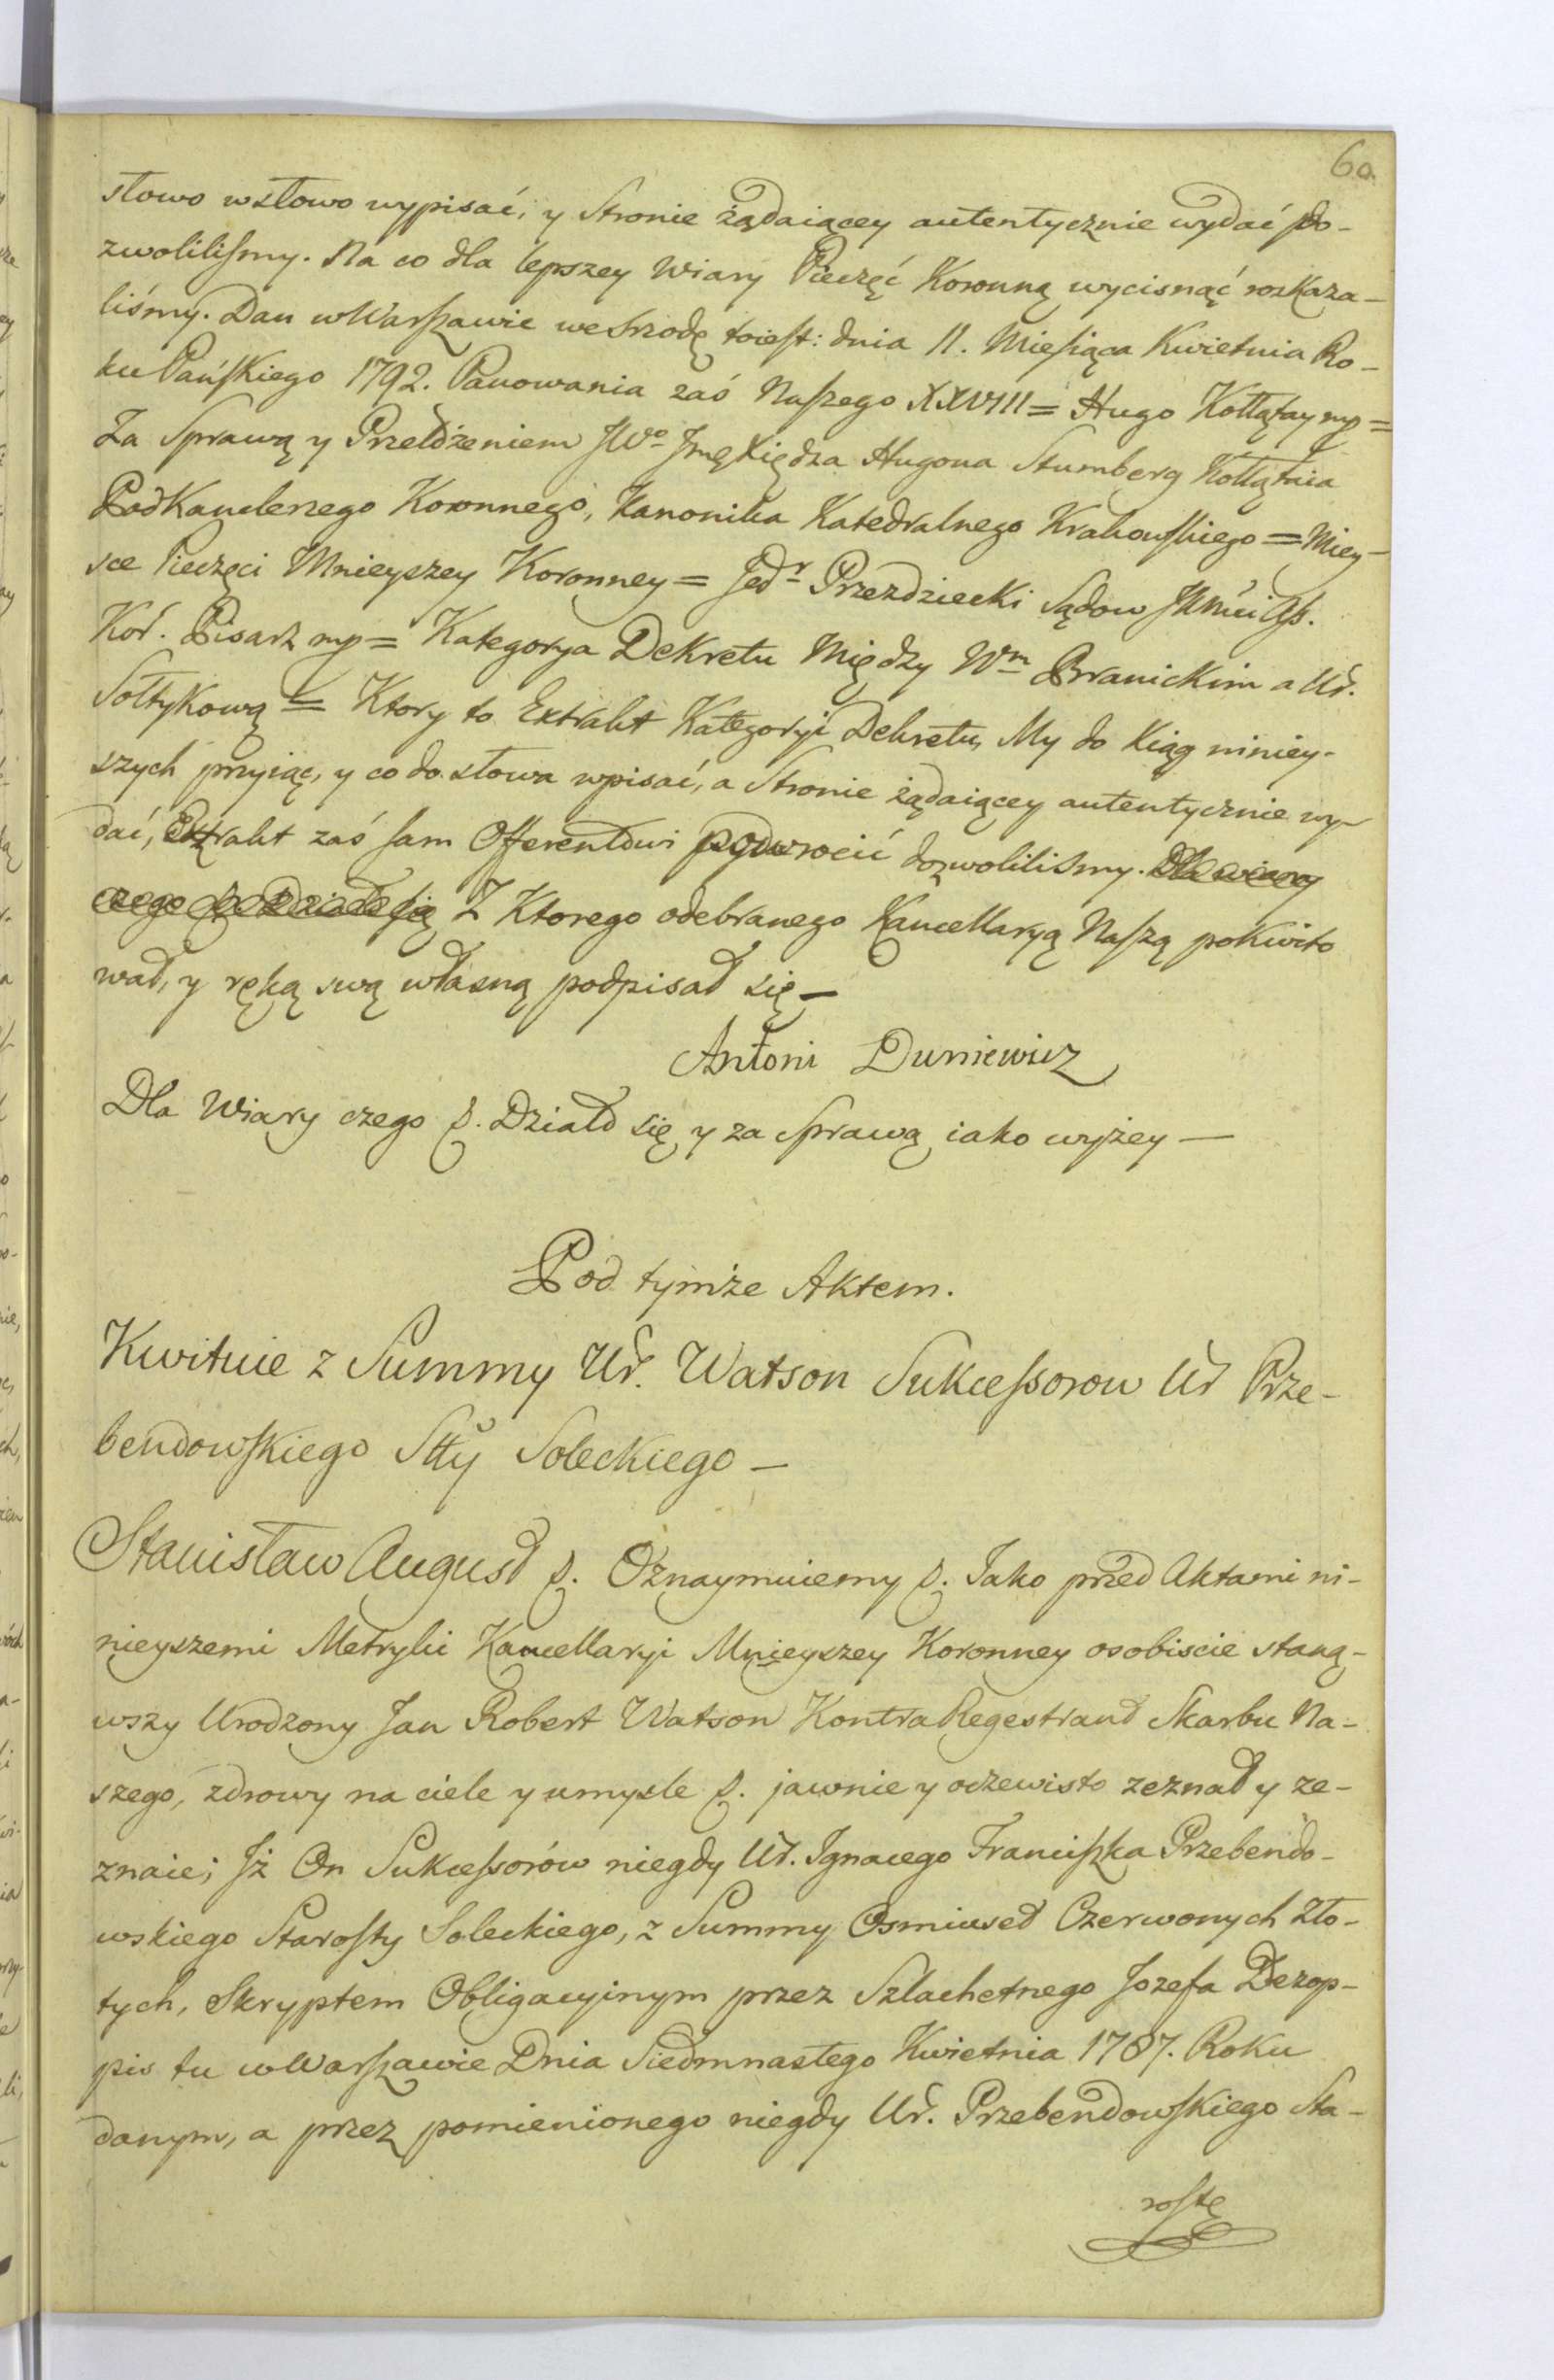 60.
słowo wsłowo wypisać, y Stronie żądaiącey autentycznie wydać po-
zwolilismy. Na co dla lepszey Wiary Pieczęć Koronną wycisnąć rozkaza-
liśmy. Dan w Warszawie we Srzodę toiest: dnia 11. Miesiąca Kwietnia Ro-
ku Pańskiego 1792. Panowania zaś Naszego XXVIII = Hugo Kołłątay mp =
Za Sprawą y Przełożeniem JWo Jmę Xiędza Hugona Stumberg Kołłątaia
PodKanclerzego Koronnego, Kanonika Katedralnego Krakowskiego = Miey-
sce Pieczęci Mnieyszey Koronney = Jędr Przezdziecki Sądow JKMci
Kor. Pisarz mp = Kategorya Dekretu Między Wm Branickim a Ur.
Sołtykową = Ktory to Extrakt Kategoryi Dekretu, My do Xiąg niniey-
szych przyiąć, y co do słowa wpisać, a Stronie żądaiącey autentycznie wy-
dać, Extrakt zaś sam Offerentowi powrocić dozwolilismy. Dla wiary
czego p. Działo się Z Ktorego odebranego Kancellaryą Naszą pokwito
wał, y ręką swą własną podpisał się —
Antoni Duniewicz
Dla Wiary czego p. Działo się y za Sprawą iako wyżey —
Pod tymże Aktem.
Kwituie z Summy Ur. Watson Sukcessorow Ur Prze-
bendowskiego Stty Soleckiego —
Stanisław August p. Oznaymuiemy p. Iako przed Aktami ni-
nieyszemi Metryki Kancellaryi Mnieyszey Koronney osobiscie staną-
wszy Urodzony Jan Robert Watson KontraRegestrant Skarbu Na-
szego, zdrowy na ciele y umysle p. jawnie y oczewisto zeznał y ze-
znaie; Jż On Sukcessorów niegdy Ur. Ignacego Franciszka Przebendo-
wskiego Starosty Soleckiego, z Summy Osmiuset Czerwonych Zło-
tych, Skryptem Obligacyinym przez Szlachetnego Jozefa Dezop-
pis tu w Warszawie Dnia Siedmnastego Kwietnia 1787. Roku
danym, a przez pomienionego niegdy Ur. Przebendowskiego Sta-
rostę